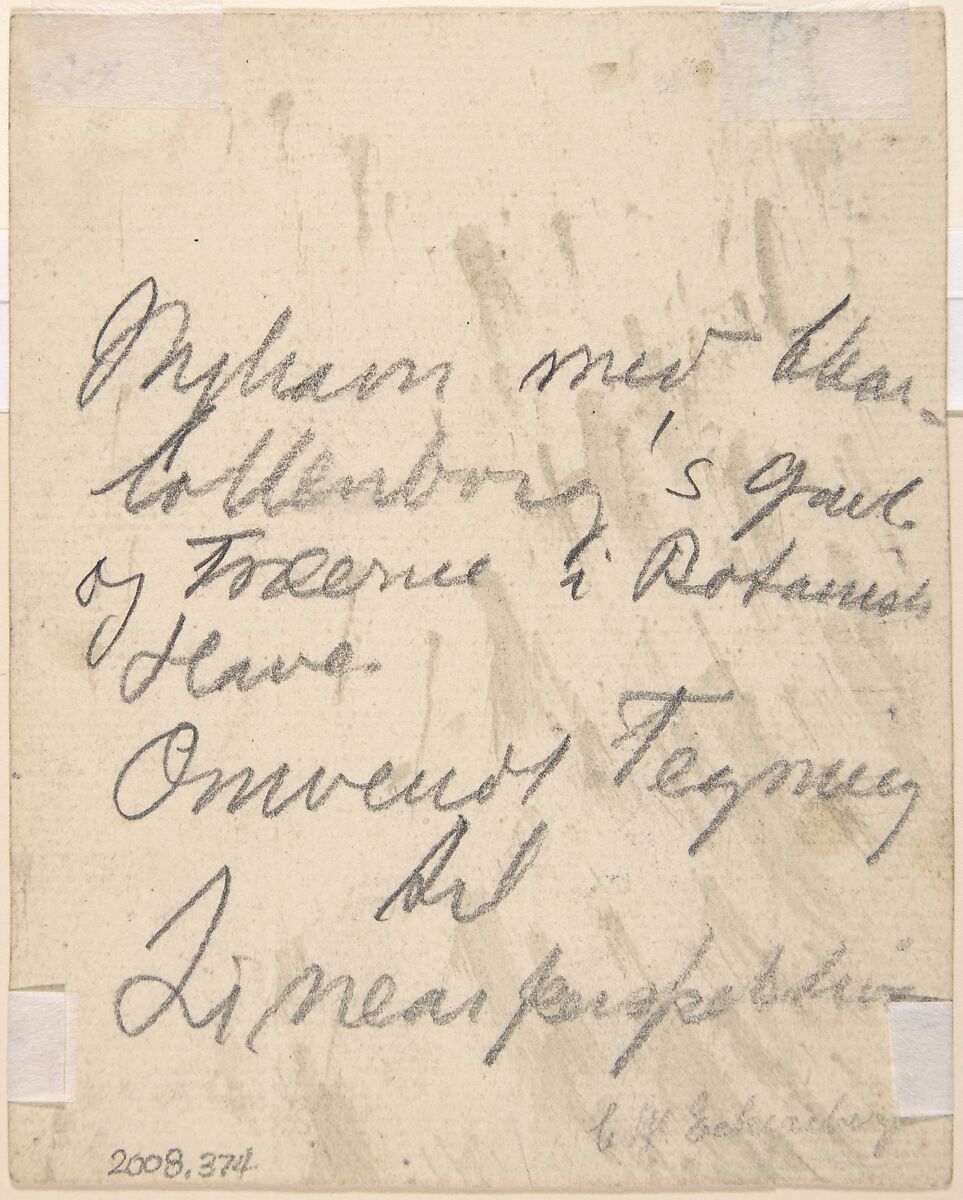 Nyhavn med Char-
lottenborg's Gavl
og Træerne i Botanisk
Have
Omvendt Tegning
til
Linearperspektiv
C W Eckersberg
2008.374